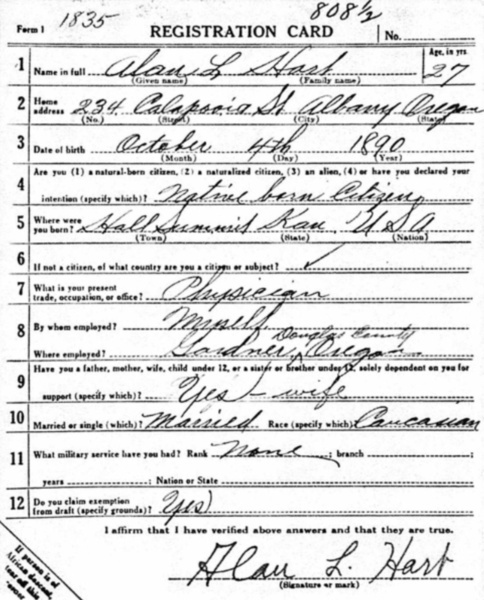 1835 808½
Form 1 REGISTRATION CARD No.
Age, in yrs.
1 Name in full Alan L Hart 27
(Given name) (Family name)
2 Home address 234 Calapooia St Albany Oregon
(No.) (Street) (City) (State)
3 Date of birth October 4th 1890
(Month) (Day) (Year)
Are you (1) a natural-born citizen, (2) a naturalized citizen, (3) an alien, (4) or have you declared your
4 intention (specify which)? Native born Citizen
5 Where were you born? Hall Summit Kan USA
(Town) (State) (Nation)
6 If not a citizen, of what country are you a citizen or subject? ✓
7 What is your present trade, occupation, or office? Physician
8 By whom employed? Myself
Douglas County
Where employed? Gardner, Oregon
9 Have you a father, mother, wife, child under 12, or a sister or brother under 12, solely dependent on you for
support (specify which)? Yes - wife
10 Married or single (which)? Married Race (specify which)? Caucasian
11 What military service have you had? Rank None ; branch
years ; Nation or State
12 Do you claim exemption from draft (specify grounds)? Yes
I affirm that I have verified above answers and that they are true.
Alan L. Hart
(Signature or mark)
If person is of
African descent,